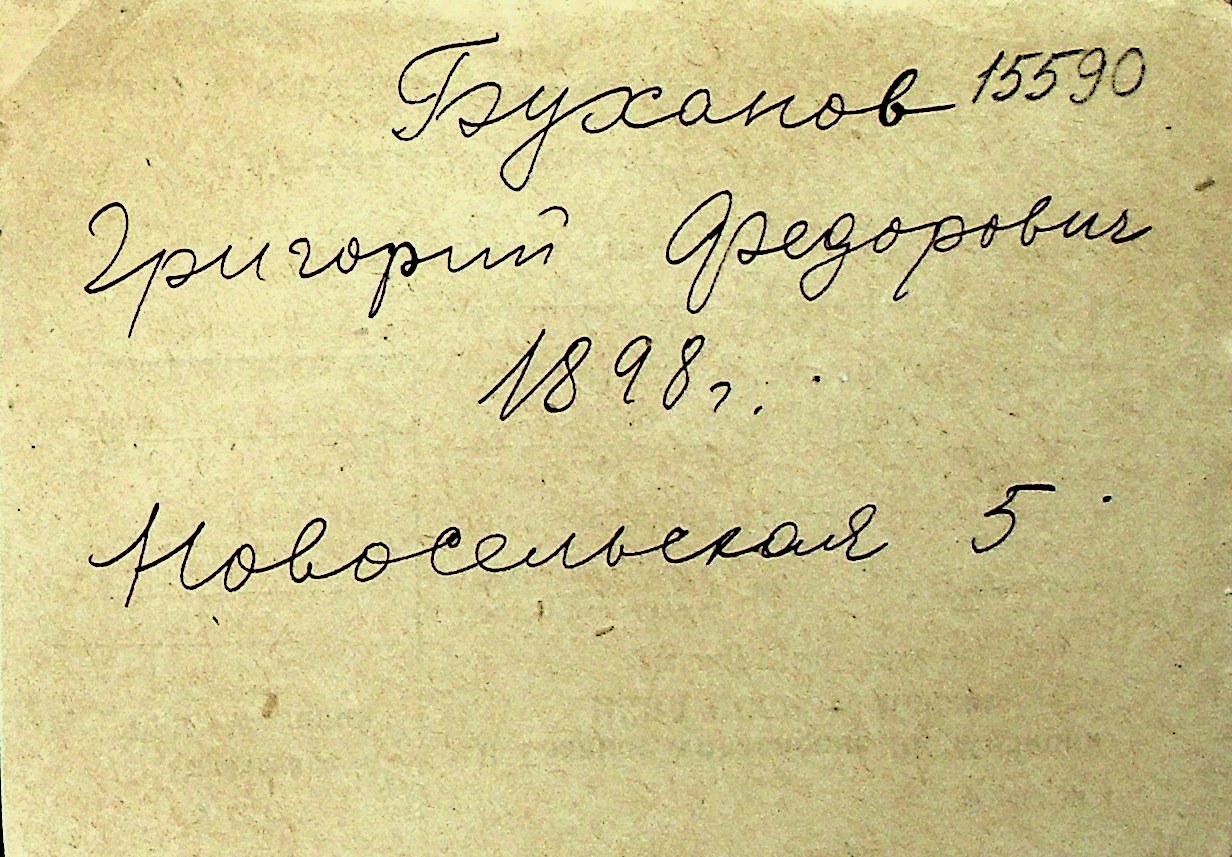 Буханов 15590
Григорий Федорович
1898 г.
Новосельская 5